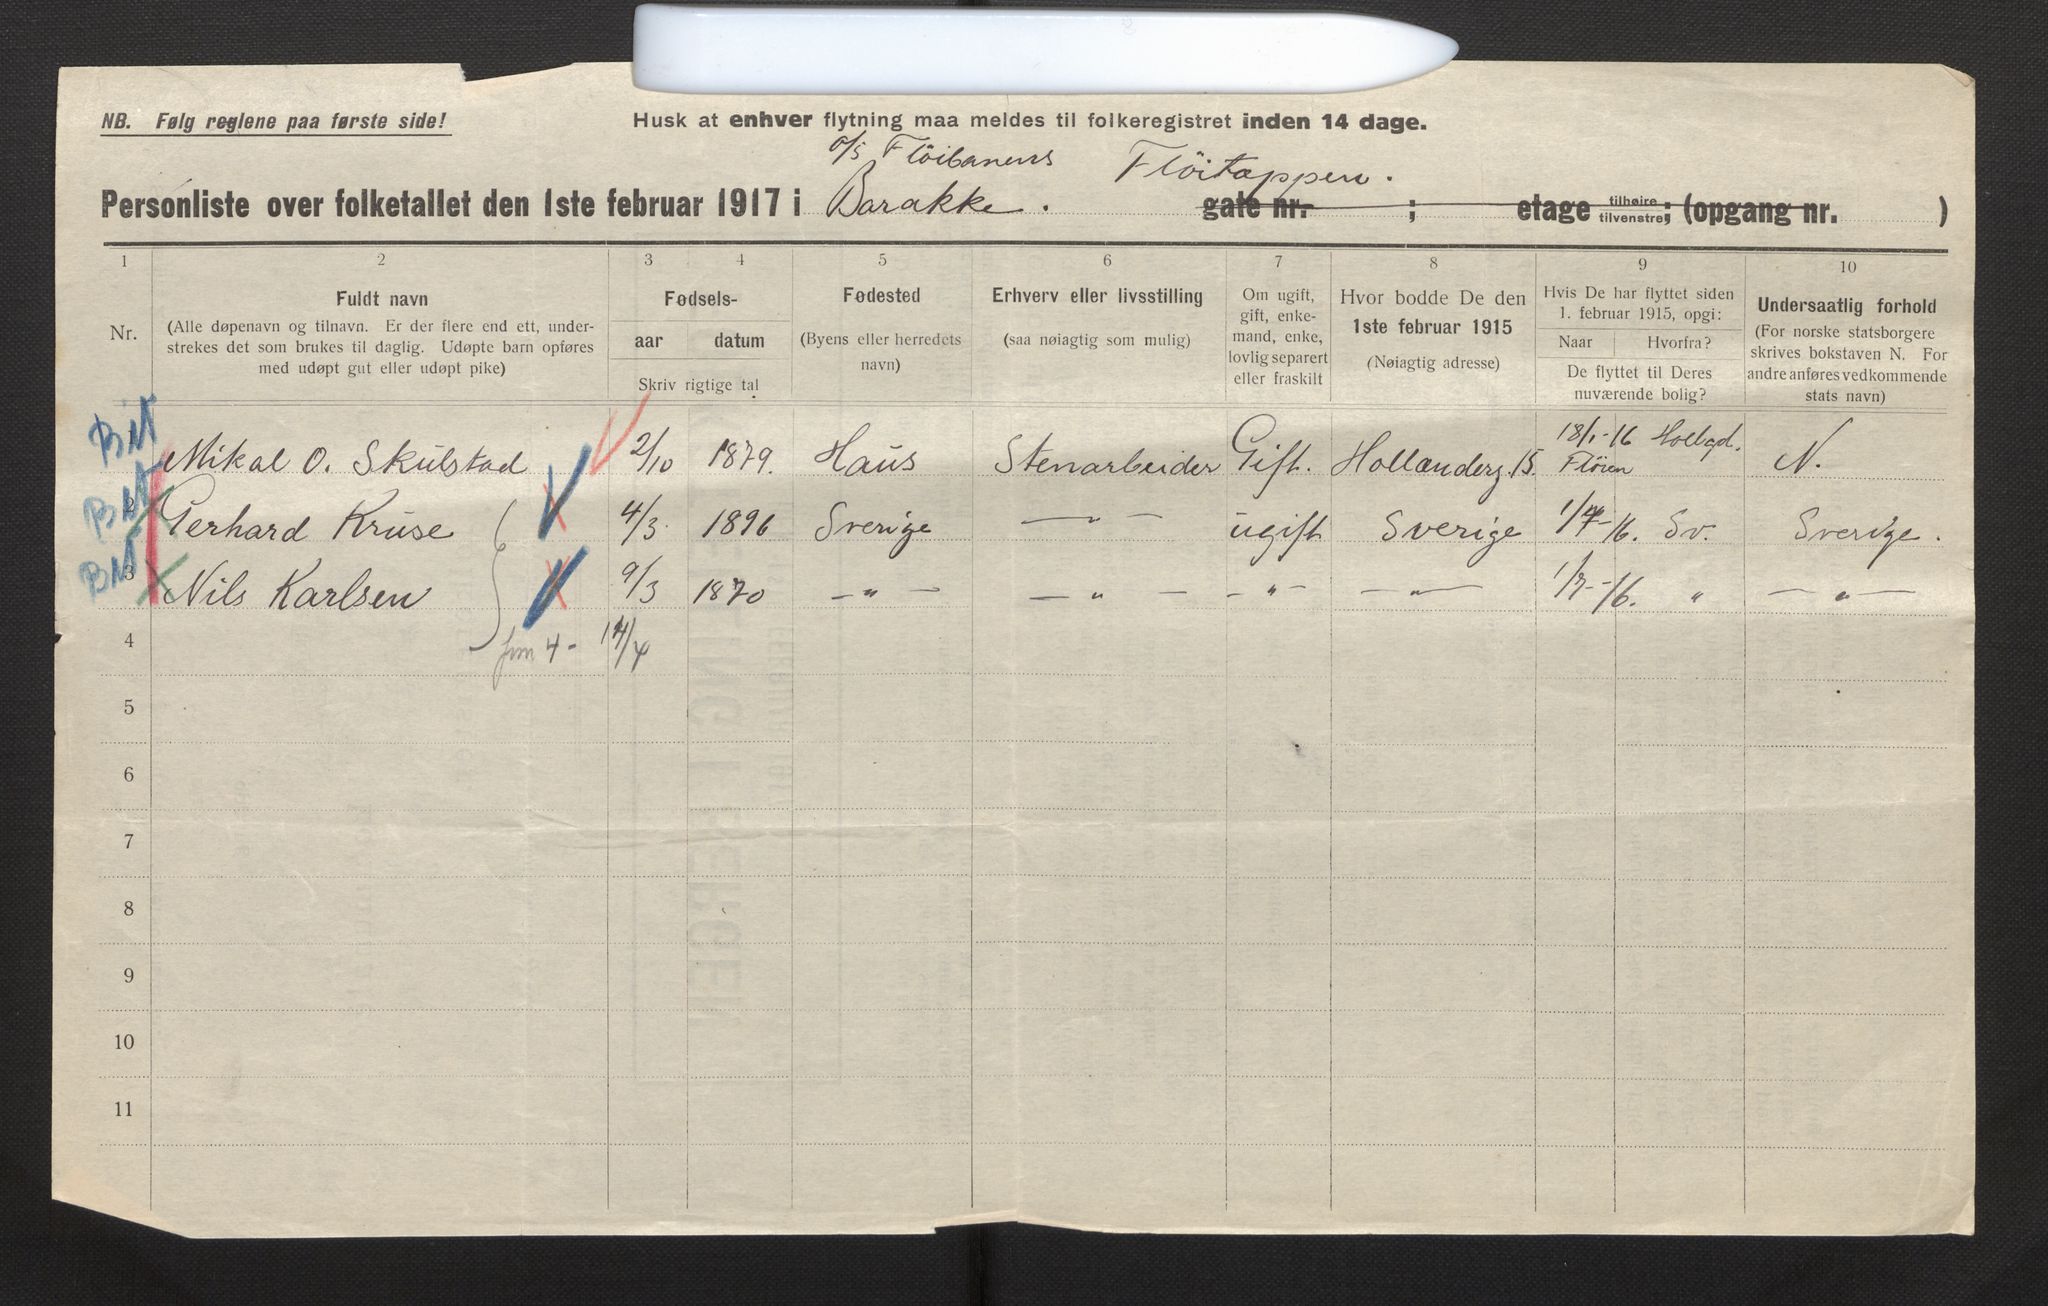 NB. Følg reglene paa første side!
Husk at enhver flytning maa meldes til folkeregistret inden 14 dage.
Personliste over folketallet den 1ste februar 1917 i A/S Flöibanens Barakke. Flöitoppen. gate nr. ; etage tilhøire tilvenstre; (opgang nr. )
1 2 3 4 5 6 7 8 9 10
Nr.
Fuldt navn
(Alle døpenavn og tilnavn. Er der flere end ett, under-
strekes det som brukes til daglig. Udøpte barn opføres
med udøpt gut eller udøpt pike)
Fødsels-
aar datum
Skriv rigtige tal
Fødested
(Byens eller herredets
navn)
Erhverv eller livsstilling
(saa nøiagtig som mulig)
Om ugift,
gift, enke-
mand, enke,
lovlig separert
eller fraskilt
Hvor bodde De den
1ste februar 1915
(Nøiagtig adresse)
Hvis De har flyttet siden
1. februar 1915, opgi:
Naar Hvorfra?
De flyttet til Deres
nuværende bolig?
Undersaatlig forhold
(For norske statsborgere
skrives bokstaven N. For
andre anføres vedkommende
stats navn)
1 Mikal O. Skulstad 2/10 1879. Haus Stenarbeider Gift. Hollænderg. 15. 18/1-16 Fløien Hollgd. N.
2 Gerhard Kruse 4/3 1896 Sverige — " — ugift Sverige 1/7-16. Sv. Sverige.
3 Nils Karlsen 9/3 1870 — " — — " — — " — — " — 1/7-16. " — " —
4
5
6
7
8
9
10
11